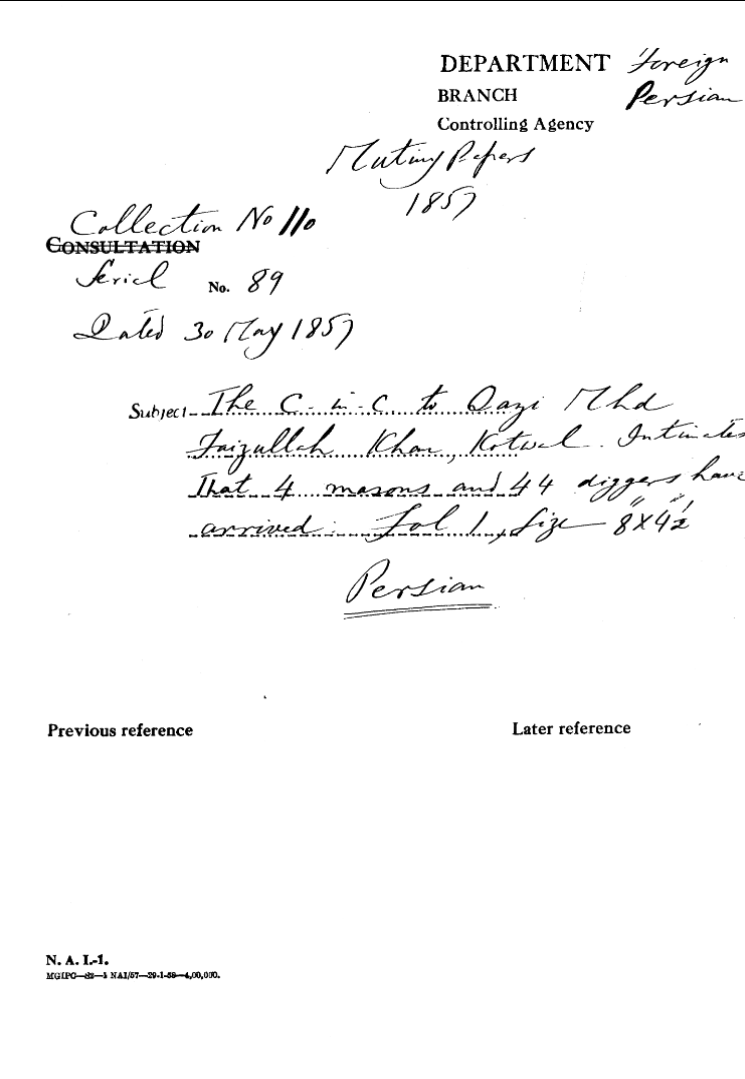 DEPARTMENT Foreign
BRANCH Persian
Controlling Agency
Mutiny Papers
1857
Collection No 110
CONSULTATION
Serial No. 89
Dated 30 May 1857
Subject The C-in-C. to Qazi Mhd
Faizullah Khan, Kotwal. Intimates
That 4 masons and 44 diggers have
arrived. Fol 1, Size 8"x4½"
Persian
Previous reference Later reference
N. A. I.-1.
MGIPC—82—5 NAI/57—29-1-58—4,00,000.